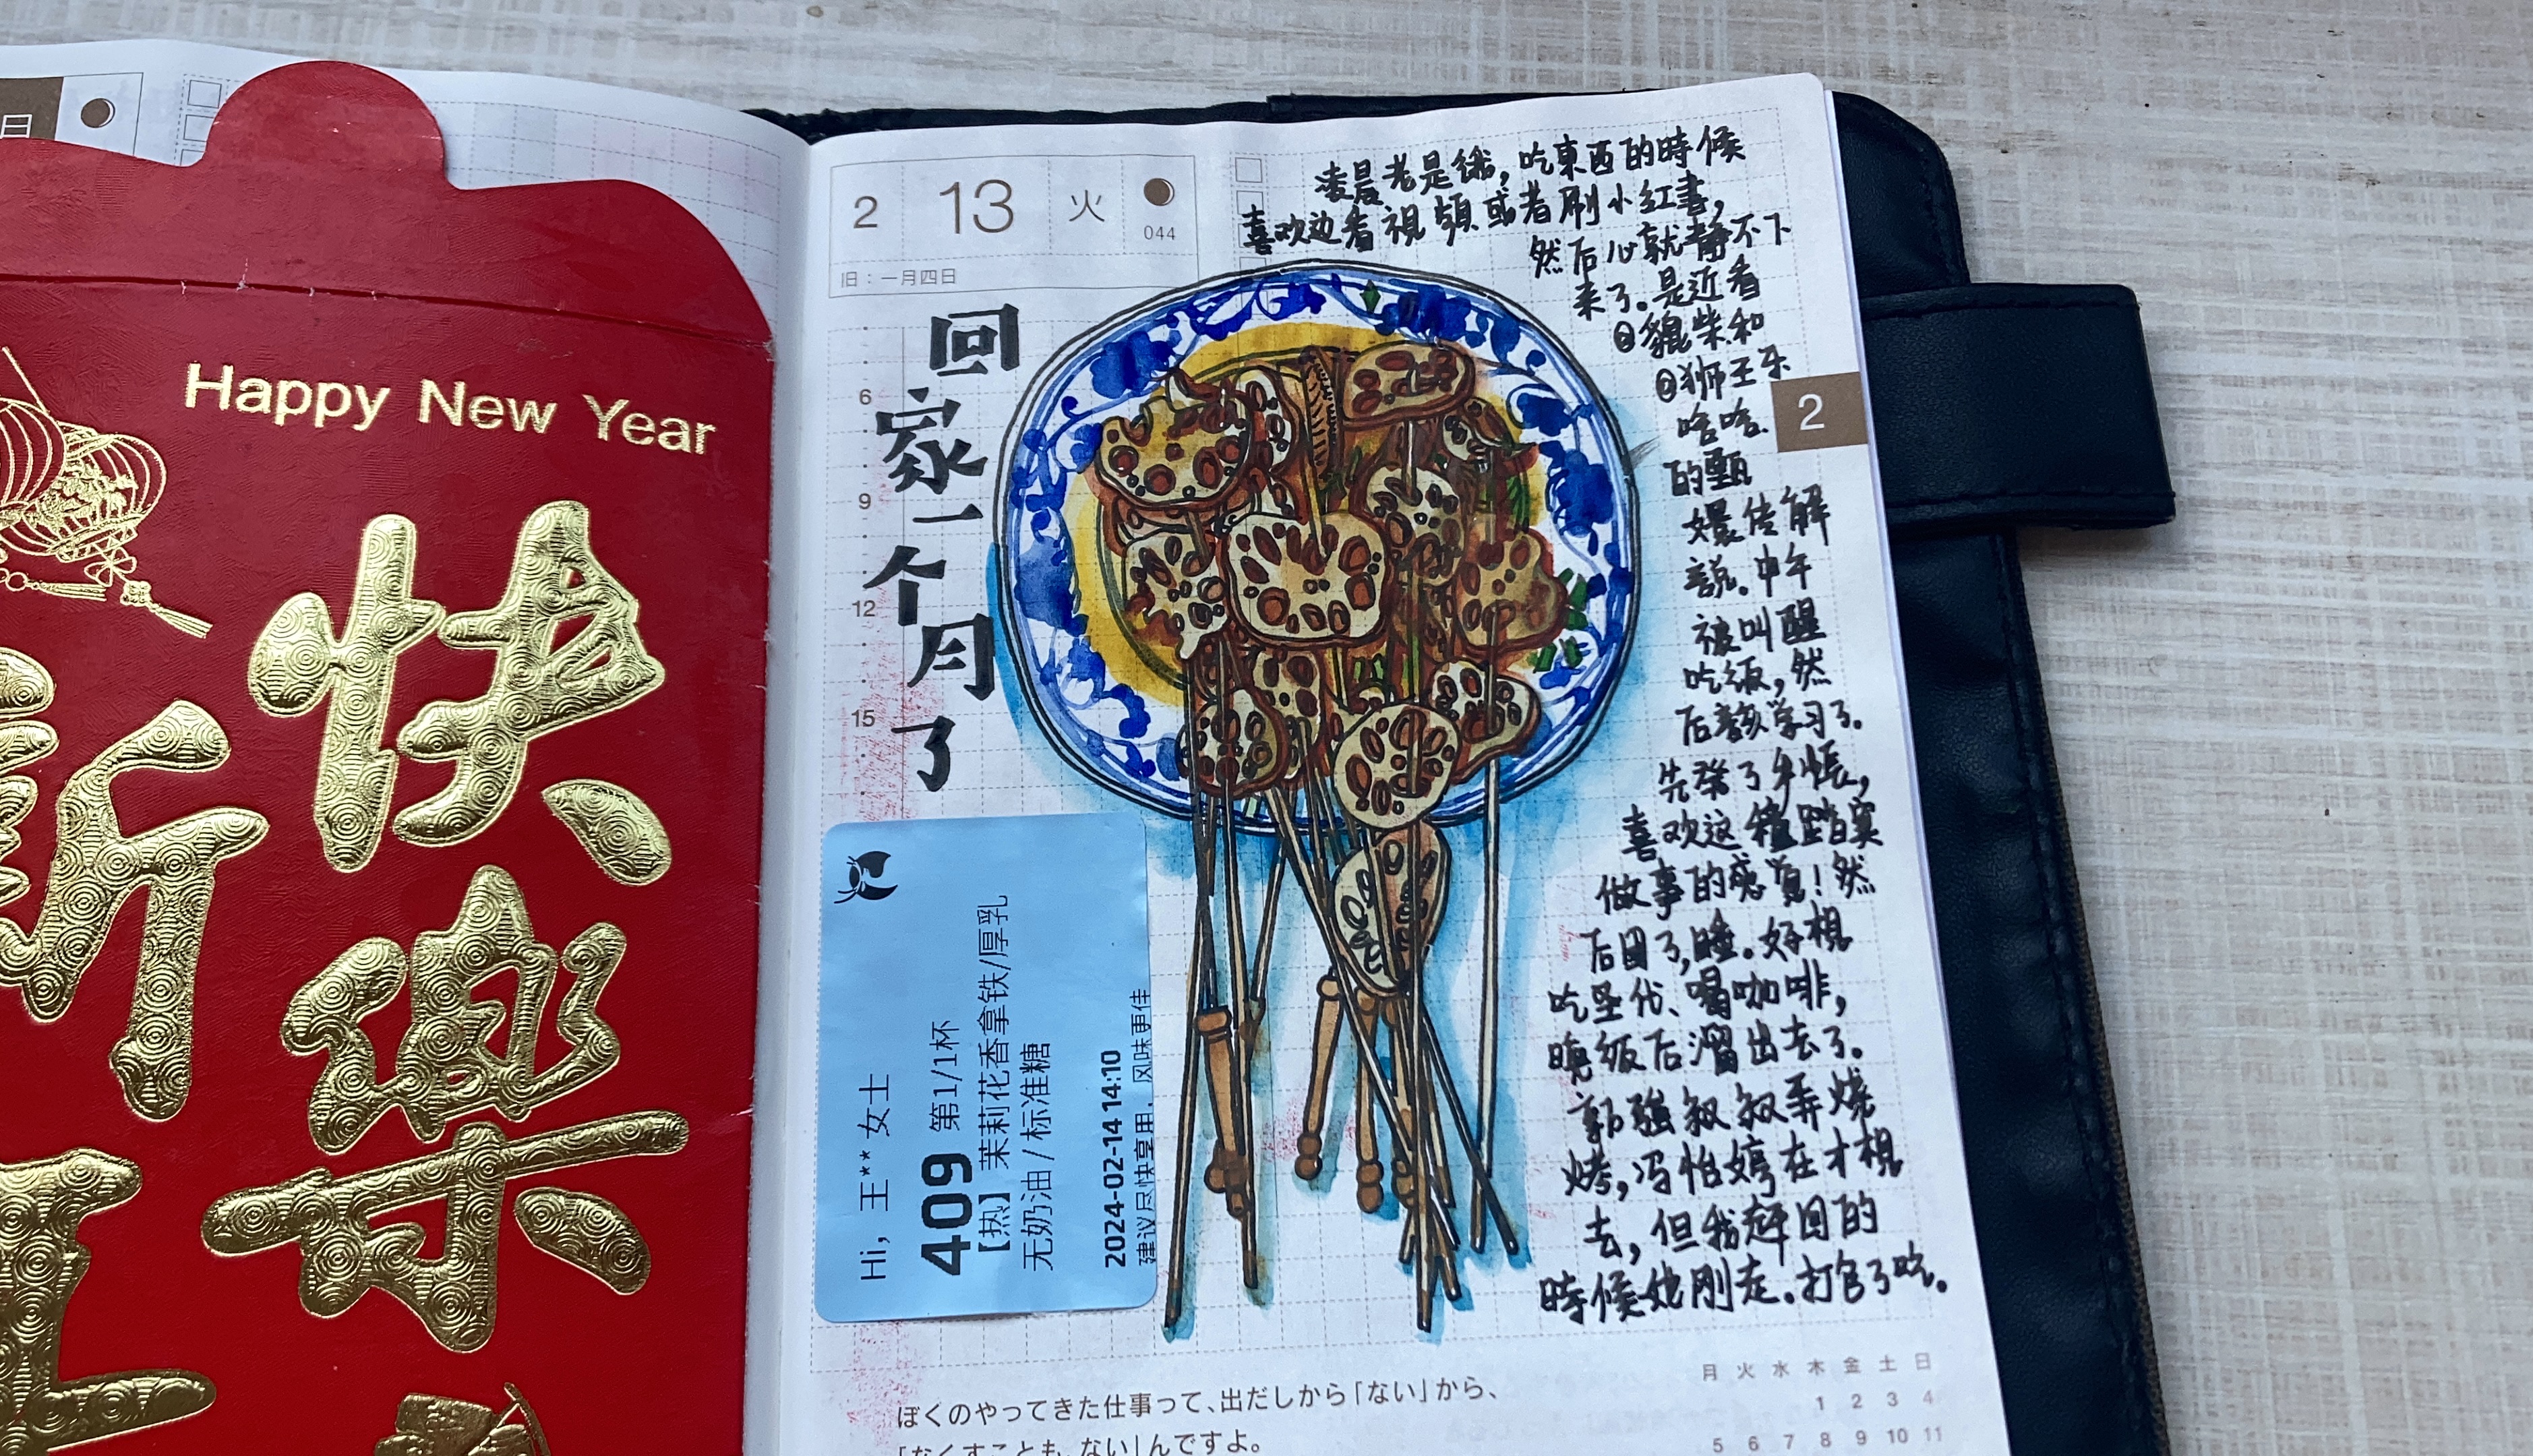 日
Happy New Year
快
樂
新
年
2 13 火
044
旧：一月四日
凌晨老是饿，吃東西的時候
喜欢边看視頻或者刷小红書，
然后心就静不下
来了。是近看
和
@狮王乐
哈哈.
的甄
嬛传解
說。中午
被叫醒
吃饭，然
后該学习了。
先發了手帳，
喜欢这種踏实
做事的感覚！然
后困了，睡。好想
吃坚代、喝咖啡，
晚饭后溜出去了。
郭強叔叔弄烧
烤，冯怡婷在才想
去，但我磨回的
時候她刚走。打包了吃。
回
家
一
个
月
了
6
9
12
15
2
Hi，王**女士
409 第1/1杯
【热】茉莉花香拿铁/厚乳
无奶油/标准糖
2024-02-14 14:10
建议尽快享用，风味更佳
ぼくのやってきた仕事って、出だしから「ない」から、
「なくすことも、ない」んですよ。
月 火 水 木 金 土 日
1 2 3 4
5 6 7 8 9 10 11